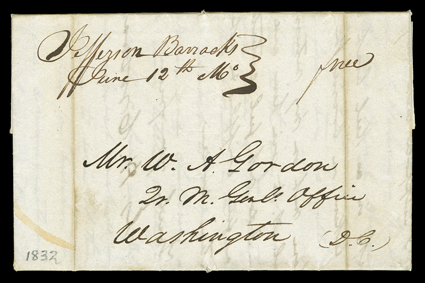 Jefferson Barracks
June 12th Mo
free
Mr. W. A. Gordon
Qr. M. Genls. Office
Washington
(D.C.)
1832